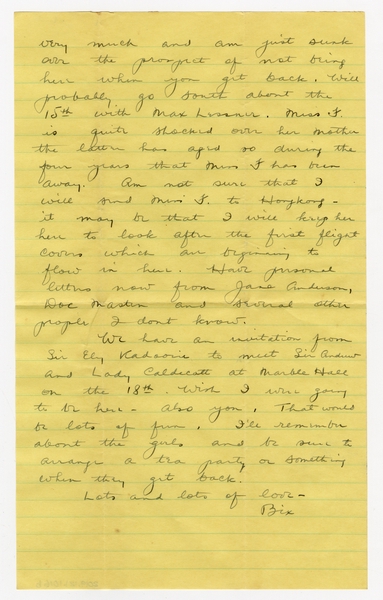 very much and am just sunk
over the prospect of not being
here when you get back. Will
probably go south about the
15th with Max Lissner. Miss F.
is quite shocked over her mother
the latter has aged so during the
four years that Miss F has been
away. Am not sure that I
will send Miss F. to Hongkong -
it may be that I will keep her
here to look after the first flight
covers which are beginning to
flow in here. Have personal
letters now from Jane Anderson,
Doc Masten and several other
people I dont know.
We have an invitation from
Sir Ely Kadoorie to meet Sir Andrew
and Lady Caldecott at Marble Hall
on the 18th. Wish I were going
to be here - Also you. That would
be lots of fun. I'll remember
about the girls and be sure to
arrange a tea party or something
when they get back.
Lots and lots of love -
Bix